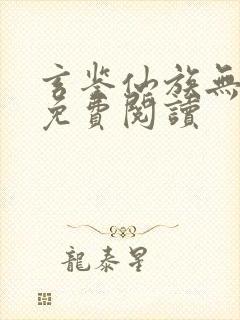 玄鉴仙族無
免費閱讀
龍泰星